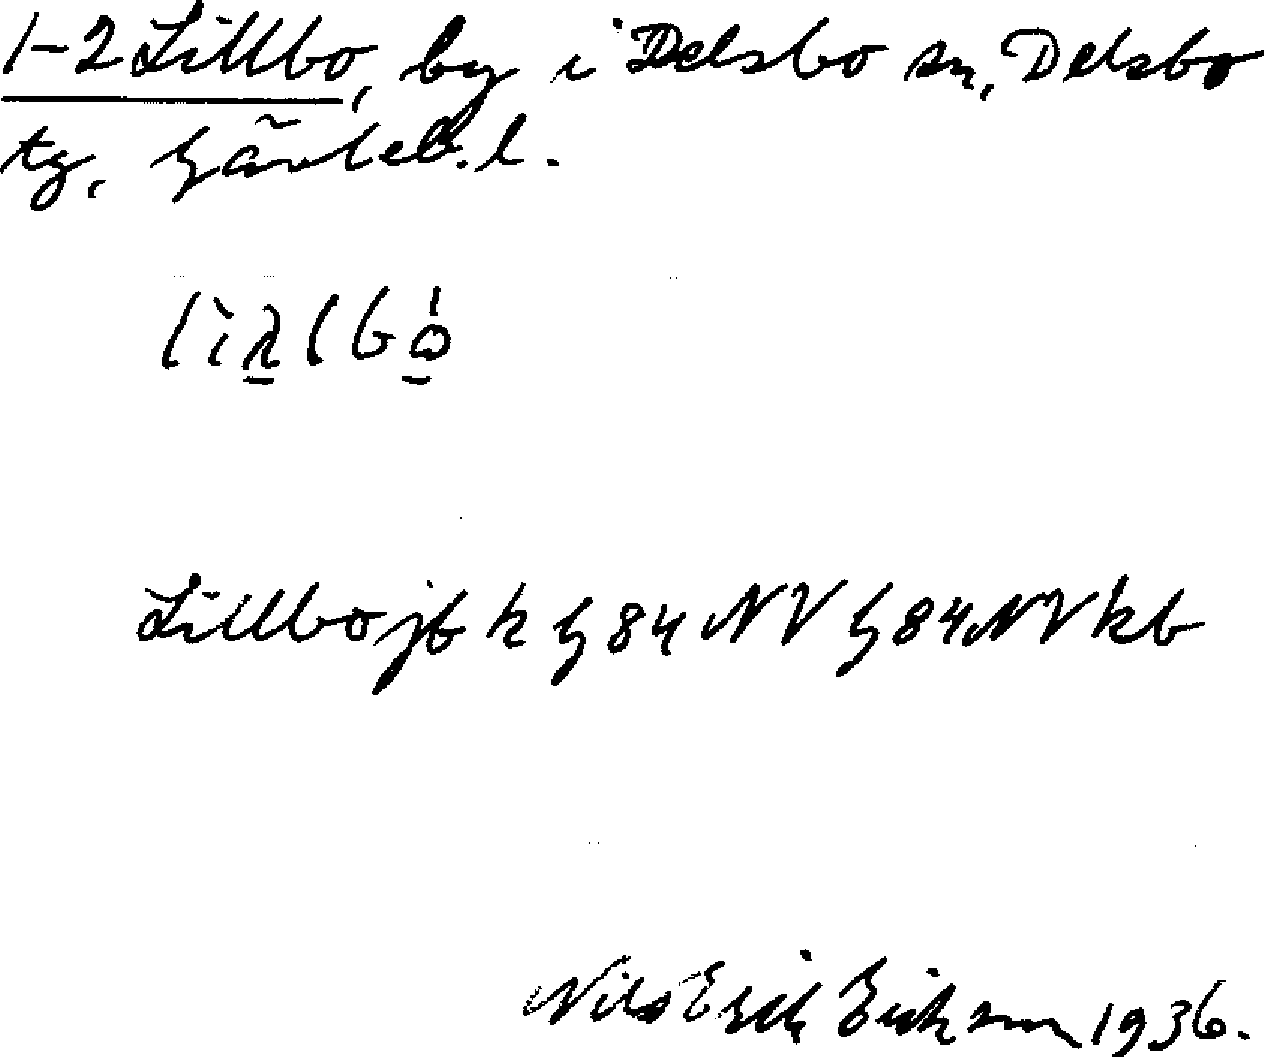 1-2 Lillbo, by i Delsbo sn, Delsbo
tg, Gävleb. l.
Lillbo jb k h 84 NV h 84 NV kb
Nils Erik Eriksson 1936.